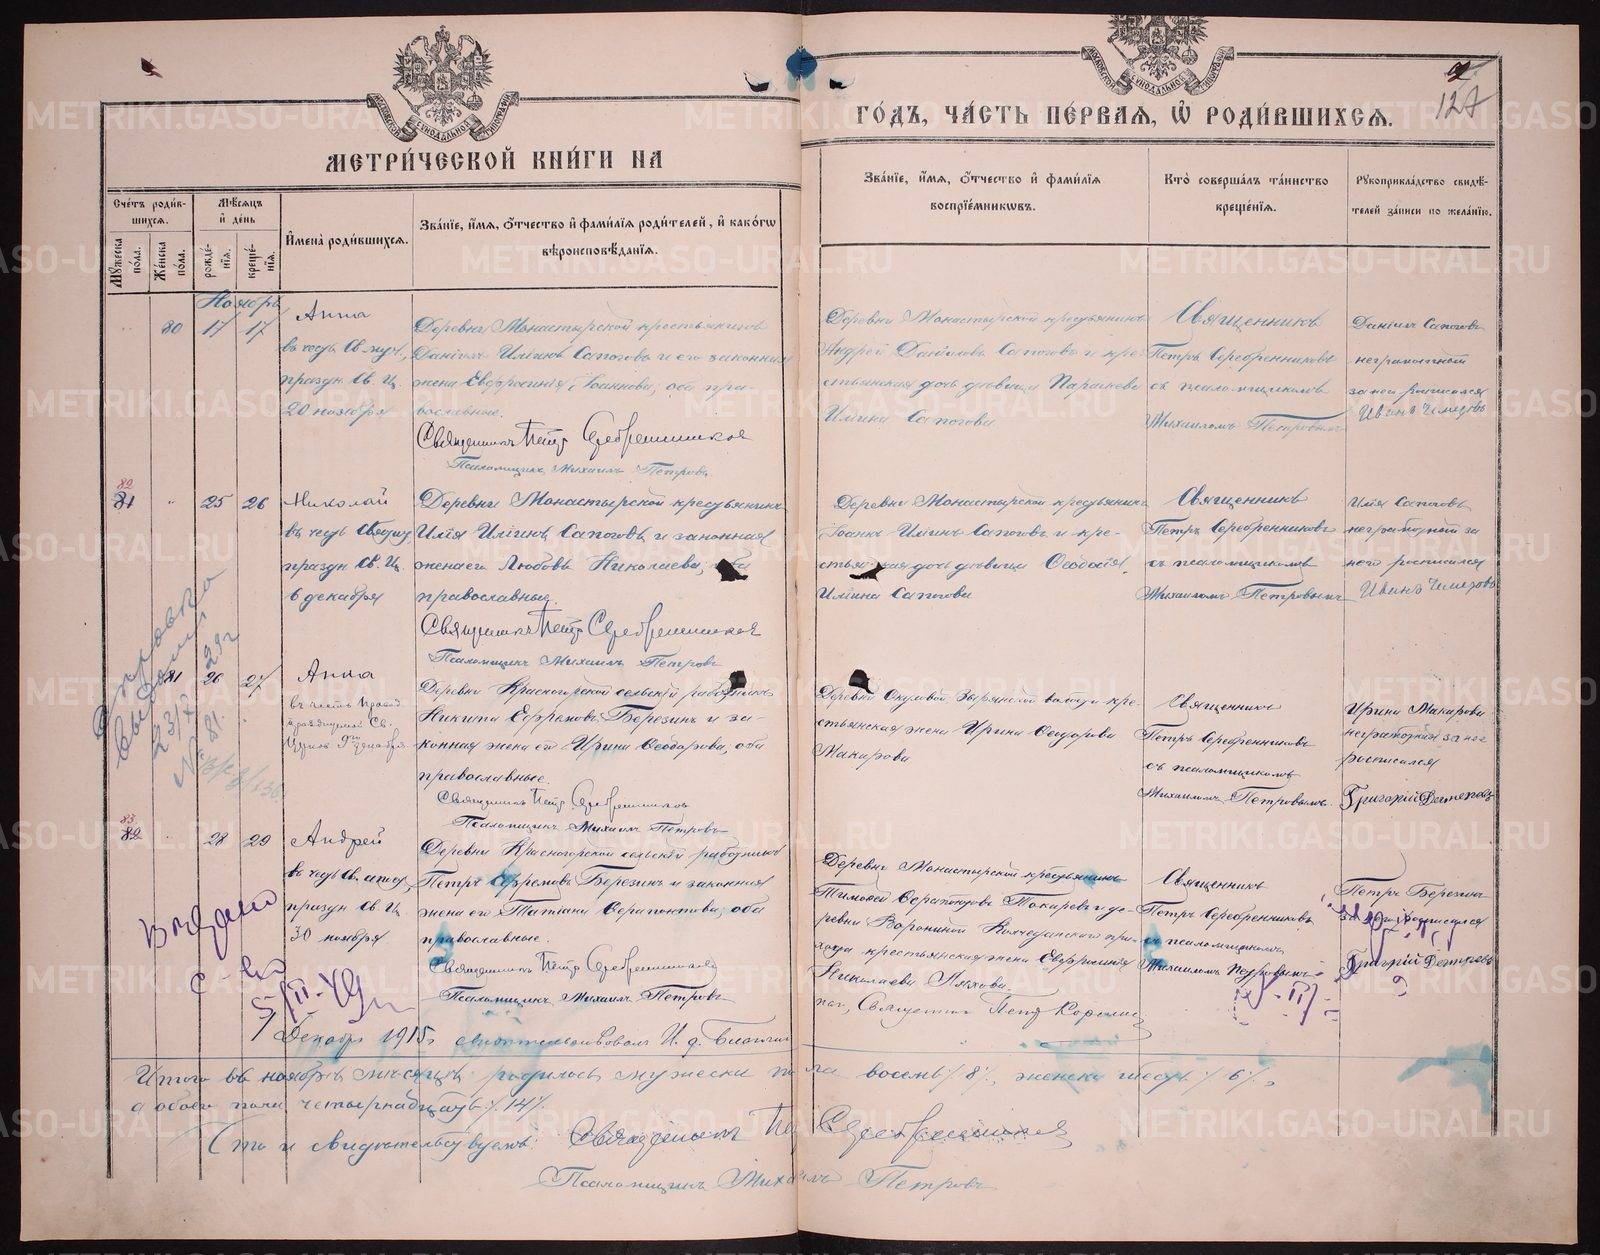 МЕТРИ́ЧЕСКОЙ КНИ́ГИ НА
ГО́ДЪ, ЧА́СТЬ ПЕ́РВАЯ, Ѽ РОДИ́ВШИХСЯ.
127
Сче́тъ роди́в-
шихся.
Мѣ́сяцъ
и҆ де́нь
И҆мена̀ роди́вшихся.
Зва́нїе, и҆́мя, ѻ҆́тчество и҆ фами́лїя роди́телей, и҆ како́гѡ
вѣроисповѣ́данїя.
Зва́нїе, и҆́мя, ѻ҆́тчество и҆ фами́лїя
воспрїе́мникѡвъ.
Кто̀ соверша́лъ та́инство
креще́нїя.
Рꙋкоприкла́дство свидѣ́-
телей за́писи по жела́нїю.
Мꙋ́жеска
по́ла.
Же́нска
по́ла.
рожде́-
нїя.
креще́-
нїя.
Ноябрь
80
17
17
Анна
празд. Св. Ц.
20 ноября
Деревни Монастырской крестьянинъ
Данїилъ Илїинъ Сапоговъ и его законная
жена Евфросинїя Іоаннова, оба пра-
вославные.
Священникъ Петръ Серебренниковъ
Псаломщикъ Михаилъ Петровъ
Деревни Монастырской крестьянинъ
Андрей Данїиловъ Сапоговъ и кре-
стьянская дочь дѣвица Параскева
Илїина Сапогова
Священникъ
Петръ Серебренниковъ
съ псаломщикомъ
Михаиломъ Петровымъ
Данїилъ Сапоговъ
неграмотный
за него росписался
Иванъ Чемезовъ
82
81
25
26
Николай
празд. Св. Ц.
6 декабря
Деревни Монастырской крестьянинъ
Илїя Илїинъ Сапоговъ и законная
жена его Любовь Николаева, оба
православные.
Священникъ Петръ Серебренниковъ
Псаломщикъ Михаилъ Петровъ
Деревни Монастырской крестьянинъ
Іоаннъ Илїинъ Сапоговъ и кре-
стьянская дочь дѣвица Феодосїя
Илїина Сапогова
Священникъ
Петръ Серебренниковъ
съ псаломщикомъ
Михаиломъ Петровымъ
Илїя Сапоговъ
неграмотный за
него росписался
Иванъ Чемезовъ
81
26
27
Анна
Деревни Красногорской сельскїй работникъ
Никита Ефремовъ Березинъ и за-
конная жена его Ирина Феодорова, оба
православные.
Священникъ Петръ Серебренниковъ
Псаломщикъ Михаилъ Петровъ
стьянская жена Ирина Феодорова
Макарова
Священникъ
Петръ Серебренниковъ
съ псаломщикомъ
Михаиломъ Петровымъ
Ирина Макарова
неграмотная за нее
росписался
83
82
28
29
Андрей
празд. Св. Ц.
30 ноября
Деревни Красногорской сельскїй работникъ
Петръ Ефремовъ Березинъ и законная
жена его Татїана Серапїонова, оба
православные.
Священникъ Петръ Серебренниковъ
Псаломщикъ Михаилъ Петровъ
Деревни Монастырской крестьянинъ
Тимофей Серапїоновъ Токаревъ и де-
ревни Ворониной Колчеданского при-
хода крестьянская жена Евфросинїя
Николаева Ляхова.
Священникъ
Петръ Серебренниковъ
съ псаломщикомъ
Михаиломъ Петровымъ
Петръ Березинъ
Справка
23/X 29 г
№ 81.
Выдано
с-во
5/II-49 г.
Декабрь 1915 г. свидѣтельствовалъ И. д. Благочин
наго, Священникъ Петр
Итого въ ноябрѣ мѣсяцѣ родилось мужеска пола восемь /8/, женска шесть /6/,
а обоего пола четырнадцать /14/.
Священникъ Петръ Серебренниковъ
Псаломщикъ Михаилъ Петровъ
METRIKI.GASO-URAL.RU